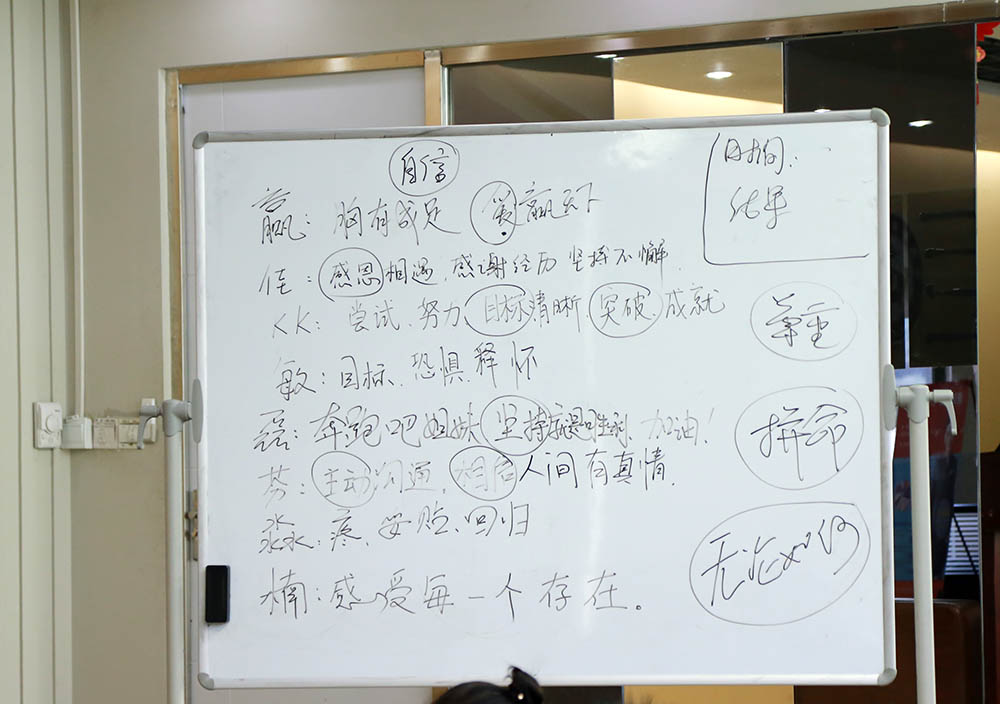 自信
赢：胸有成足 笑赢天下
佳：感恩相遇、感谢经历 坚持不懈
KK：尝试、努力、目标清晰、突破、成就
敏：目标、恐惧、释怀
磊：奔跑吧姐妹 坚持就是胜利、加油！
芬：主动沟通、相信人间有真情
淼：疼、妥贴、回归
楠：感受每一个存在。
时间：
结果
尊重
拼命
无论如何